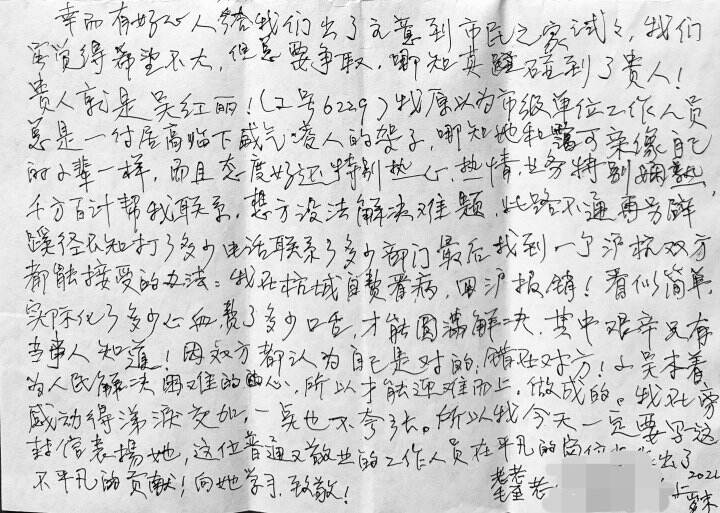 幸而有好心人给我们出了主意到市民之家试试，我们
虽觉得希望不大，但总要争取，哪知真碰到了贵人！
贵人就是吴红丽！（工号6229）我原以为市级单位工作人员
总是一付居高临下盛气凌人的架子，哪知她和蔼可亲像自己
的小辈一样，而且态度好还特别热心、热情，业务特别娴熟，
千方百计帮我联系，想方设法解决难题，此路不通再另辟
蹊径不知打了多少电话联系了多少部门最后找到一个沪杭双方
都能接受的办法：我在杭城自费看病，回沪报销！看似简单，
实际化了多少心血，费了多少口舌，才能圆满解决，其中艰辛只有
当事人知道！因双方都认为自己是对的，错在对方！小吴本着
为人民解决困难的心，所以才能迎难而上，做成的。我在家
感动得涕泪交加，一点也不夸张。所以我今天一定要写这
封信表扬她，这位普通又敬业的工作人员在平凡的岗位出了
不平凡的贡献！向她学习，致敬！
耄耋老 2021
岁末